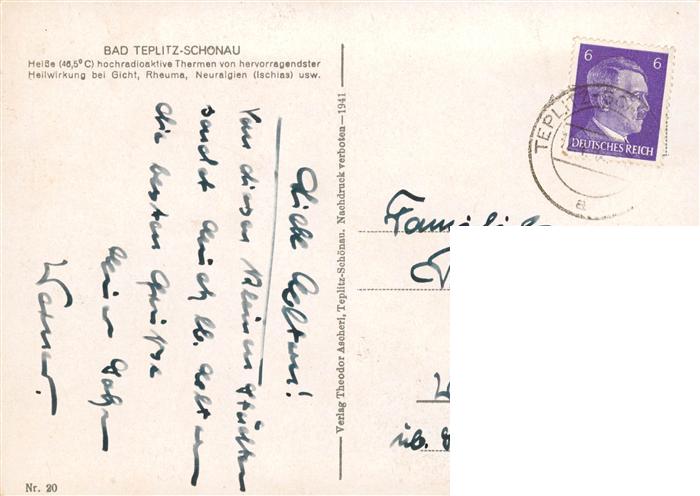 BAD TEPLITZ-SCHÖNAU
Heiße (46,5° C) hochradioaktive Thermen von hervorragendster
Heilwirkung bei Gicht, Rheuma, Neuralgien (Ischias) usw.
Liebe Eltern!
Von diesem kleinen Städtchen
sendet Euch lb. Eltern
die besten Grüße
Euer Sohn
Werner.
Nr. 20
Verlag Theodor Ascherl, Teplitz-Schönau. Nachdruck verboten—1941
6 6
DEUTSCHES REICH
TEPLITZ-SCHÖ
a
Familie
üb.